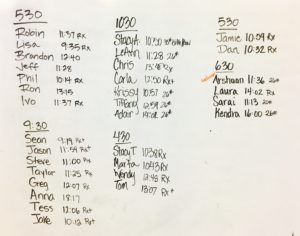 530
Robin 11:37 Rx
Lisa 9:35 Rx
Brandon 12:40
Jeff 11:28
Phil 10:14 Rx
Ron 13:15
Ivo 11:37 Rx
9:30
Sean 9:19 Rx+
Jason 11:54 Rx+
Steve 11:00 Rx
Taylor 11:25 Rx
Greg 12:07 Rx
Anna 18:17
Tess 12:06 Rx+
Jake 10:12 Rx+
1030
Stacy A. 10:30
LeAnn 11:28 26#
Chris 13:48 Rx
Carla 12:50 Rx+
Krissy 10:57 26#
Tiffany 12:59 26#
Adair 26#
430
Staci T 10:38 Rx
Marta 10:43 Rx
Wendy 12:43 Rx
Tom 13:07 Rx+
530
Jamie 10:59 Rx
Dan 10:32 Rx
630
Arshaun 11:36 26#
Laura 14:02 Rx
Sarai 11:13 20#
Kendra 16:00 26#